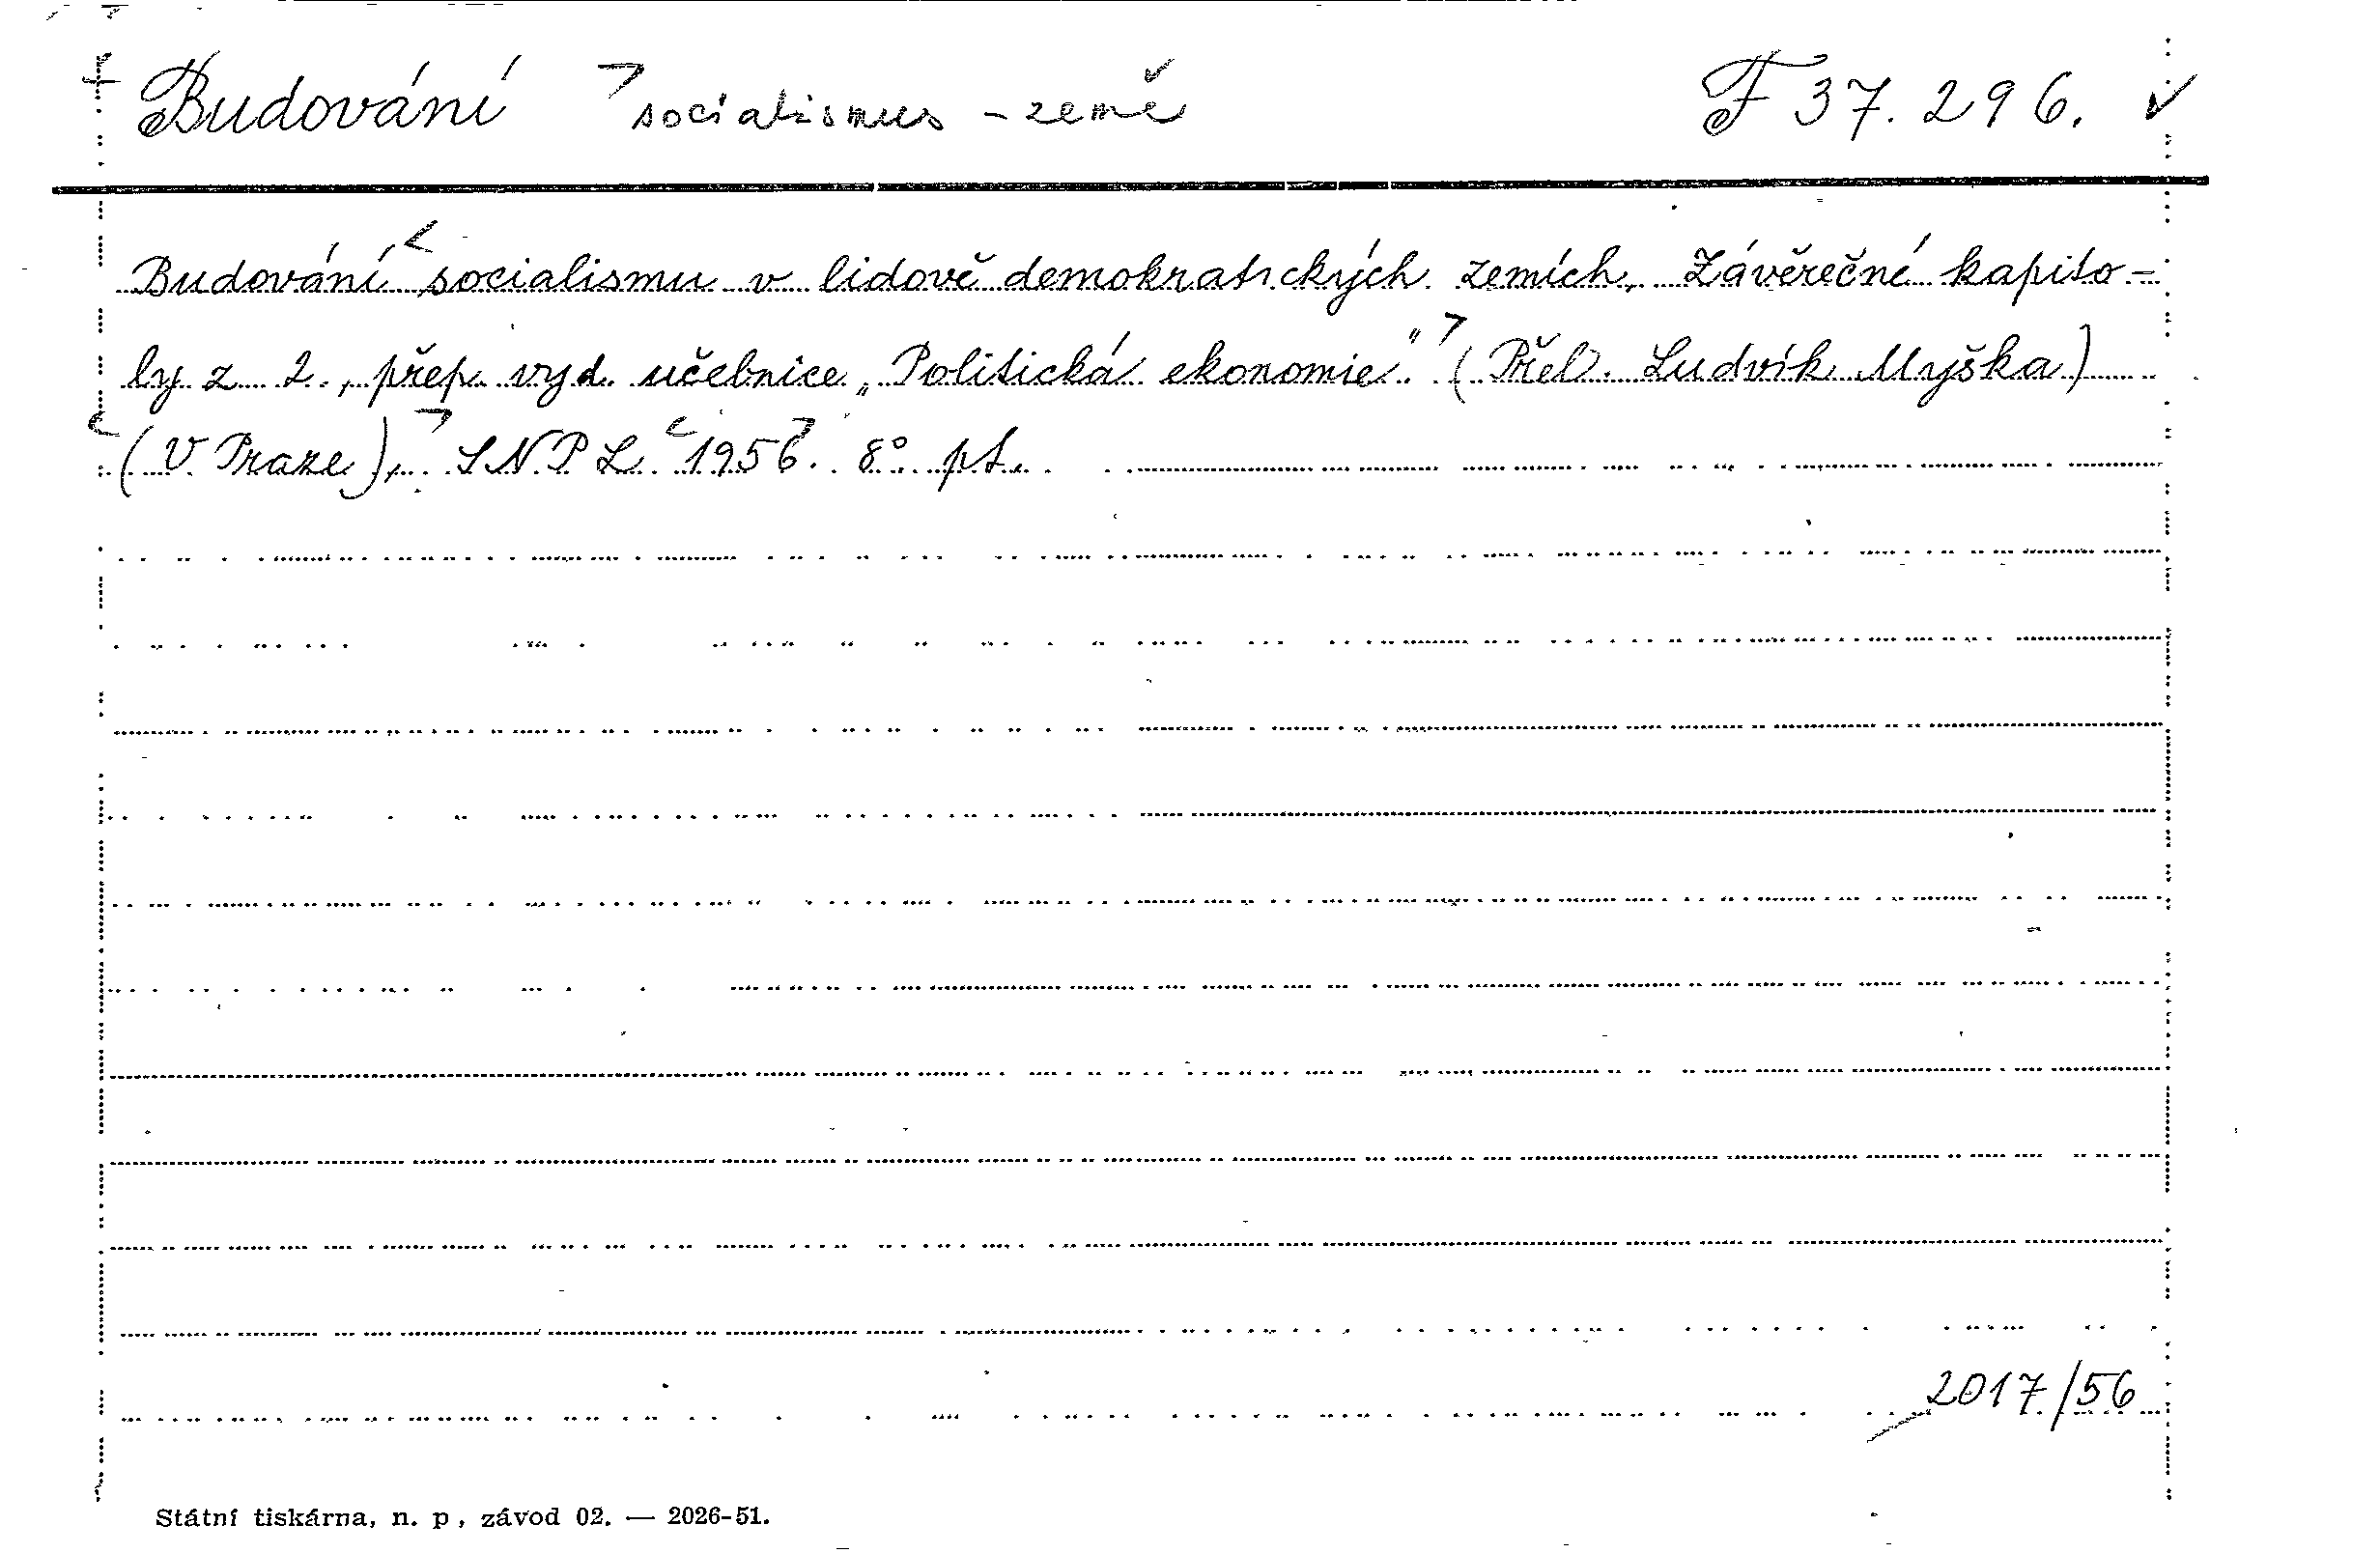 Budování socialismus - země F 37.296.
Budování socialismu v lidově demokratických zemích. Závěrečné kapito-
ly z 2., přep. vyd. učebnice „Politická ekonomie" (Přel. Ludvík Myška)
(V Praze), SNPL 1956. 8°. pt.
2017/56
Státní tiskárna, n. p, závod 02. — 2026-51.